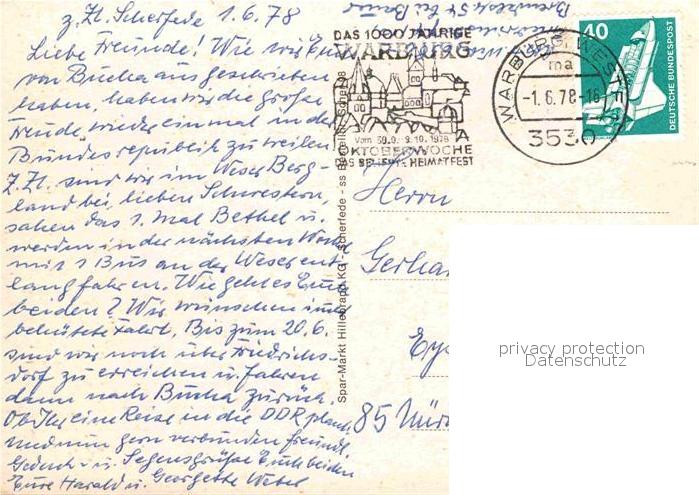 z. Zt. Scherfede 1.6.78
Liebe Freunde! Wie wir Euch
von Bucha aus geschrieben
haben, haben wir die große
Freude, wieder einmal in der
Bundesrepublik zu weilen
Z. Zt. sind wir im Weser Berg-
land bei lieben Schwestern,
sahen das 1. mal Bethel u.
werden in der nächsten Woche
mit 1 Bus an der Weser ent-
lang fahren. Wie geht es Euch
beiden? Wir wünschen immer
behütete Fahrt. Bis zum 20.6.
sind wir noch über Friedrichs-
dorf zu erreichen u. fahren
dann nach Bucha zurück.
Ob Ihr eine Reise in die DDR plant
Und nun gern verbunden freundl.
Gedenk- u. Segensgrüße Euch beiden
Eure Harald u. Georgette Wetzel
Spar-Markt Hillebrand KG - Scherfede
DAS 1000 JÄHRIGE
WARBURG
Vom 30.9. - 8.10.1978
OKTOBERWOCHE
DAS BELIEBTE HEIMATFEST
WARBURG, WESTF
ma
-1.6.78-16
3530
40
DEUTSCHE BUNDESPOST
Herrn
Gerha
Ey
85 Nür
privacy protection
Datenschutz